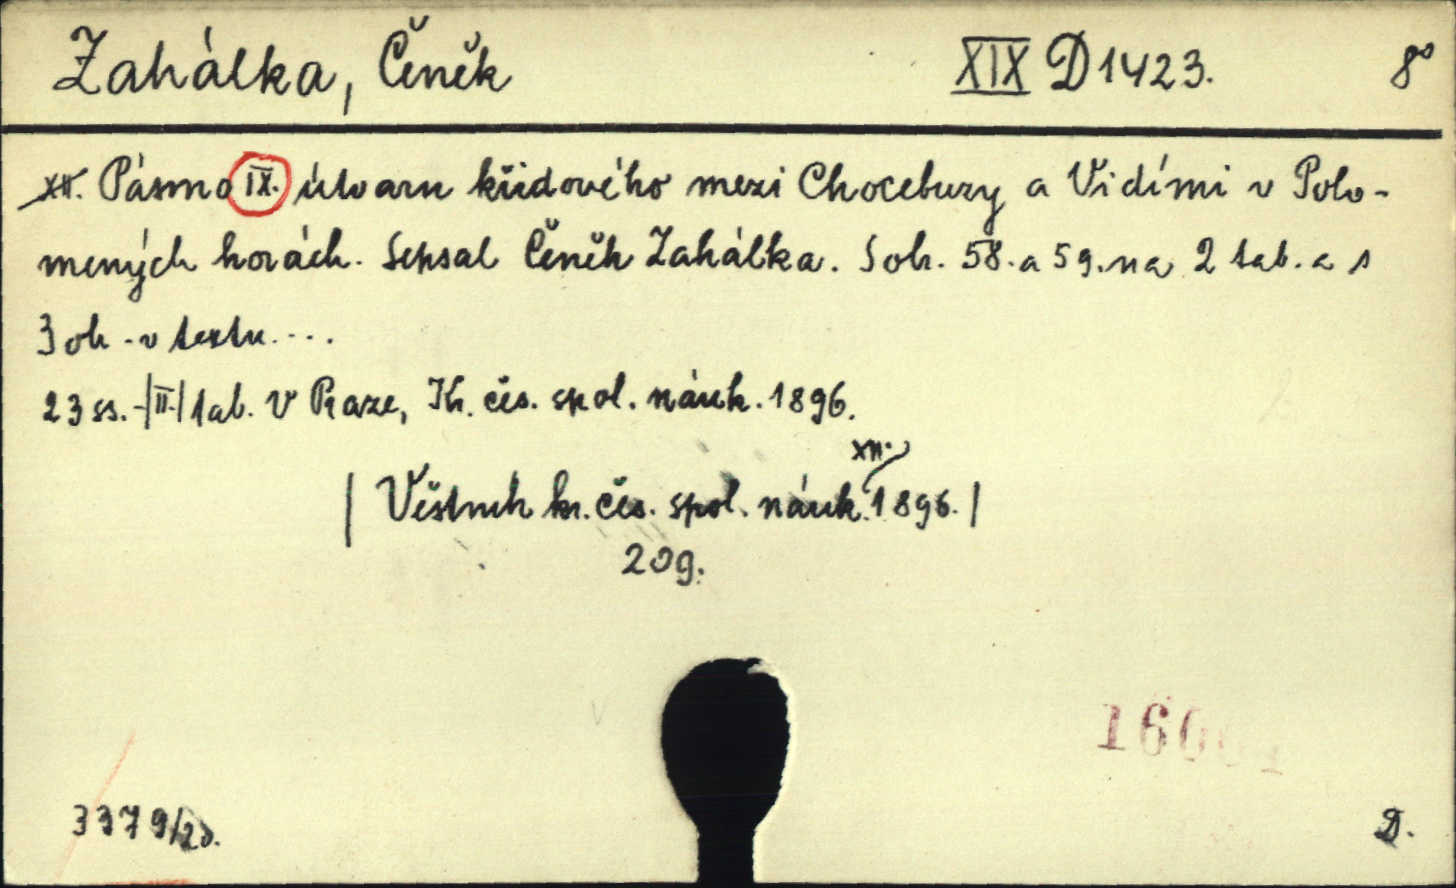 Zahálka, Čeněk XIX D 1423. 8°
XII. Pásmo IX. útvaru křídového mezi Chocebuzy a Vidími v Polo-
mených horách. Sepsal Čeněk Zahálka. S obr. 58. a 59. na 2 tab. a s
3 obr. v textu....
23 ss. - |II.| tab. V Praze, Kr. čes. spol. náuk. 1896.
XII.
| Věstník kr. čes. spol. náuk. 1896. |
209.
3379/20.
D.